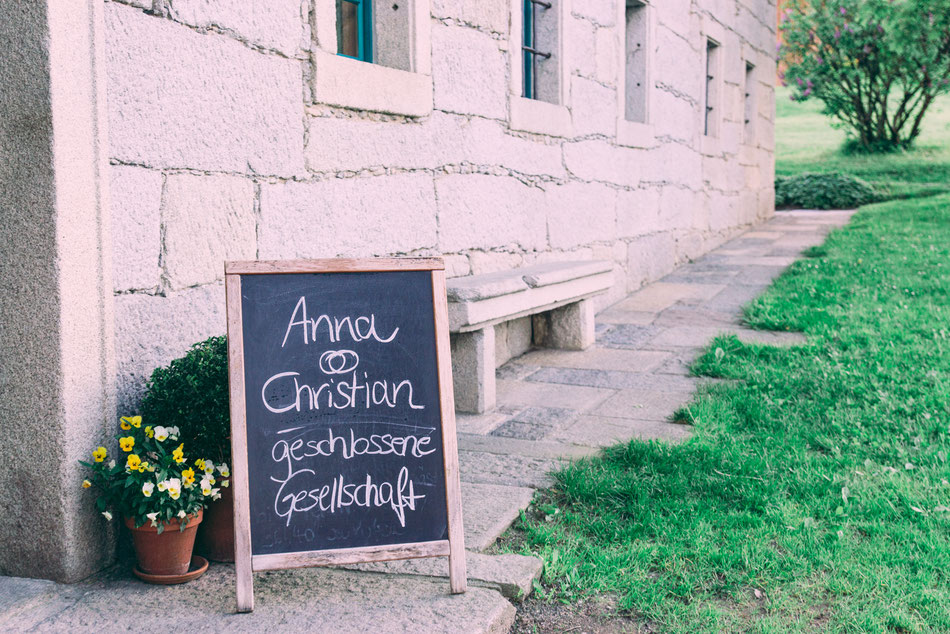 Anna
Christian
geschlossene
Gesellschaft